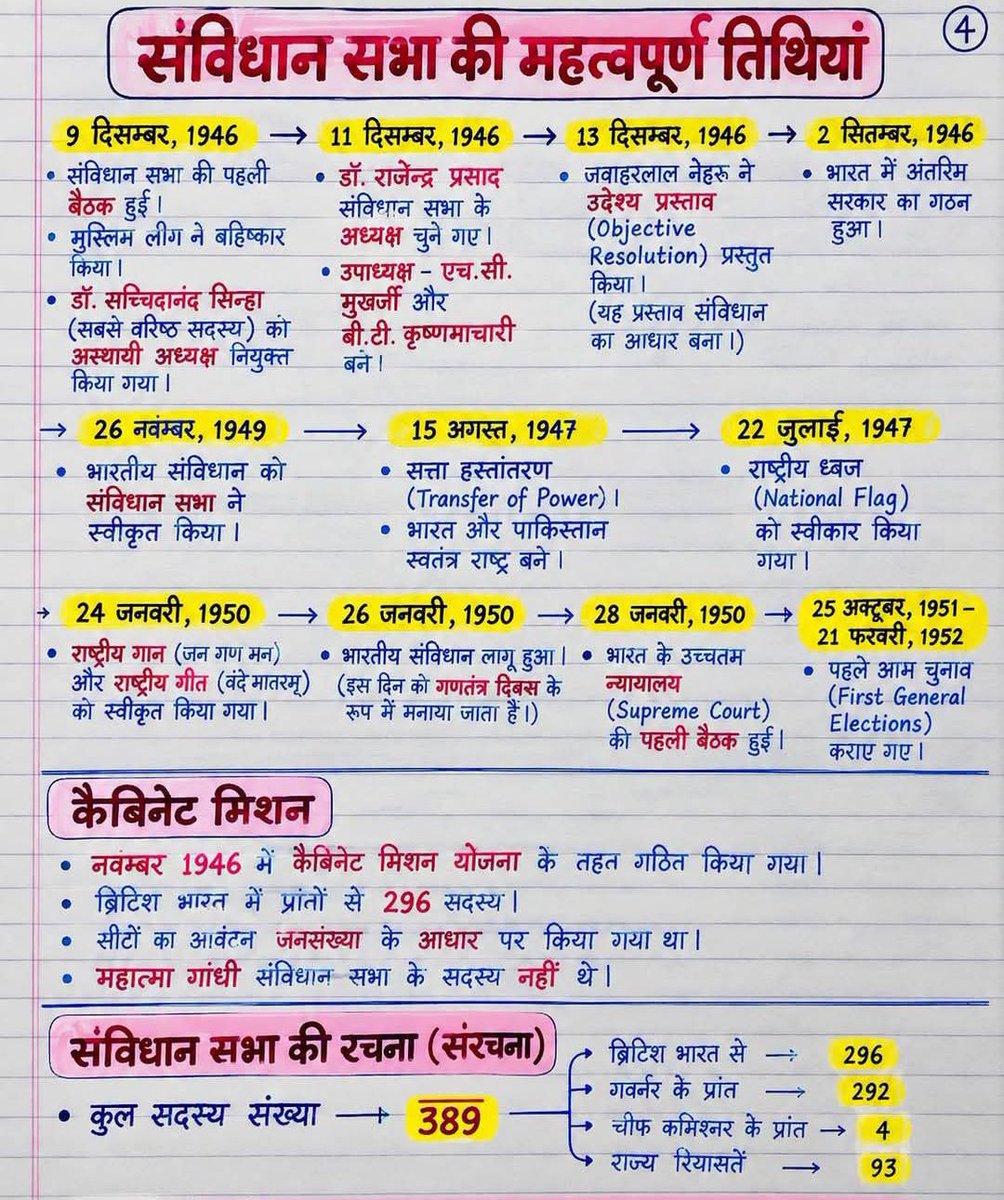 संविधान सभा की महत्वपूर्ण तिथियां
4
9 दिसम्बर, 1946 →
• संविधान सभा की पहली
बैठक हुई।
• मुस्लिम लीग ने बहिष्कार
किया।
• डॉ. सच्चिदानंद सिन्हा
(सबसे वरिष्ठ सदस्य) को
अस्थायी अध्यक्ष नियुक्त
किया गया।
11 दिसम्बर, 1946 →
• डॉ. राजेन्द्र प्रसाद
संविधान सभा के
अध्यक्ष चुने गए।
• उपाध्यक्ष – एच.सी.
मुखर्जी और
बी.टी. कृष्णमाचारी
बने।
13 दिसम्बर, 1946 →
• जवाहरलाल नेहरू ने
उदेश्य प्रस्ताव
(Objective
Resolution) प्रस्तुत
किया।
(यह प्रस्ताव संविधान
का आधार बना।)
2 सितम्बर, 1946
• भारत में अंतरिम
सरकार का गठन
हुआ।
→ 26 नवंम्बर, 1949 →
• भारतीय संविधान को
संविधान सभा ने
स्वीकृत किया।
15 अगस्त, 1947 →
• सत्ता हस्तांतरण
(Transfer of Power)।
• भारत और पाकिस्तान
स्वतंत्र राष्ट्र बने।
22 जुलाई, 1947
• राष्ट्रीय ध्बज
(National Flag)
को स्वीकार किया
गया।
→ 24 जनवरी, 1950 →
• राष्ट्रीय गान (जन गण मन)
और राष्ट्रीय गीत (वंदे मातरम्)
को स्वीकृत किया गया।
26 जनवरी, 1950 →
• भारतीय संविधान लागू हुआ।
(इस दिन को गणतंत्र दिबस के
रूप में मनाया जाता है।)
28 जनवरी, 1950 →
• भारत के उच्चतम
न्यायालय
(Supreme Court)
की पहली बैठक हुई।
25 अक्टूबर, 1951 –
21 फरवरी, 1952
• पहले आम चुनाव
(First General
Elections)
कराए गए।
कैबिनेट मिशन
• नवम्बर 1946 में कैबिनेट मिशन योजना के तहत गठित किया गया।
• ब्रिटिश भारत में प्रांतों से 296 सदस्य।
• सीटों का आवंटन जनसंख्या के आधार पर किया गया था।
• महात्मा गांधी संविधान सभा के सदस्य नहीं थे।
संविधान सभा की रचना (संरचना)
• कुल सदस्य संख्या → 389
ब्रिटिश भारत से → 296
गवर्नर के प्रांत → 292
चीफ कमिश्नर के प्रांत → 4
राज्य रियासतें → 93